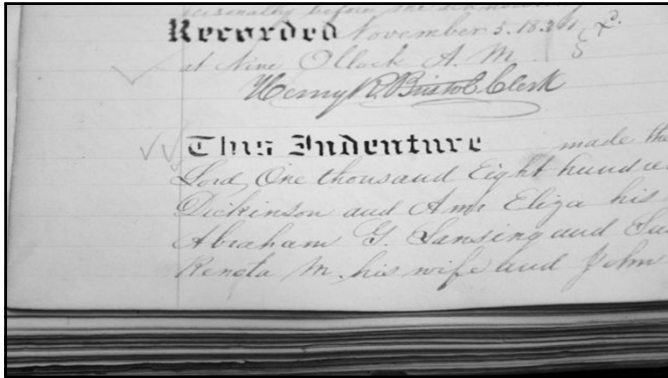 personally before me
Recorded November 3. 1834
at Nine O'Clock A. M.
Henry R. Bristol Clerk
This Indenture made the
Lord One thousand Eight hundred
Dickinson and Ann Eliza his
Abraham G. Lansing and
Reneta M. his wife and John